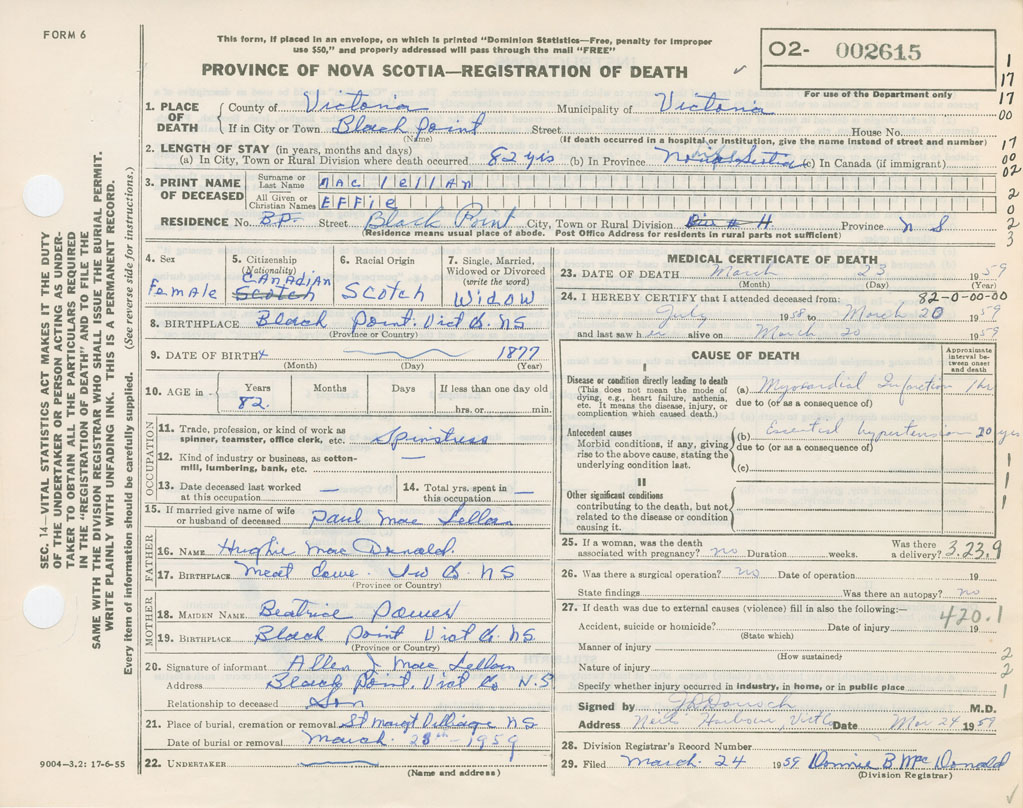 FORM 6
This form, if placed in an envelope, on which is printed "Dominion Statistics—Free, penalty for improper
use $50," and properly addressed will pass through the mail "FREE"
PROVINCE OF NOVA SCOTIA—REGISTRATION OF DEATH
O2- 002615
For use of the Department only
1. PLACE OF DEATH
County of Victoria Municipality of Victoria
If in City or Town Black Point Street House No.
(Name) (If death occurred in a hospital or institution, give the name instead of street and number)
2. LENGTH OF STAY (in years, months and days)
(a) In City, Town or Rural Division where death occurred 82 yrs (b) In Province Nova Scotia (c) In Canada (if immigrant)
3. PRINT NAME OF DECEASED
Surname or Last Name Mac lellan
All Given or Christian Names EFFie
RESIDENCE No. B.P. Street Black Point City, Town or Rural Division Province N S
(Residence means usual place of abode. Post Office Address for residents in rural parts not sufficient)
4. Sex
Female
5. Citizenship
(Nationality)
CANADIAN
Scotch
6. Racial Origin
Scotch
7. Single, Married, Widowed or Divorced
(write the word)
Widow
8. BIRTHPLACE Black Point. Vict Co. NS
(Province or Country)
9. DATE OF BIRTH 1877
(Month) (Day) (Year)
10. AGE in
Years Months Days If less than one day old
82. hrs. or min.
OCCUPATION
11. Trade, profession, or kind of work as
spinner, teamster, office clerk, etc. Spinstress
12. Kind of industry or business, as cotton-
mill, lumbering, bank, etc. —
13. Date deceased last worked
at this occupation —
14. Total yrs. spent in
this occupation —
15. If married give name of wife
or husband of deceased Paul Mac Lellan
FATHER
16. NAME Hughie Mac Donald.
17. BIRTHPLACE Meat Cove. Inv Co. NS
(Province or Country)
MOTHER
18. MAIDEN NAME Beatrice Power
19. BIRTHPLACE Black Point Vict Co. NS
(Province or Country)
20. Signature of informant Allen J Mac Lellan
Address Black Point. Vict Co N.S
Relationship to deceased Son
21. Place of burial, cremation or removal St Margt Village NS
Date of burial or removal March. 28th - 1959
22. UNDERTAKER
(Name and address)
9004—3.2: 17-6-55
MEDICAL CERTIFICATE OF DEATH
23. DATE OF DEATH March 23 1959
(Month) (Day) (Year)
24. I HEREBY CERTIFY that I attended deceased from: 82-0-00-00
July 1958 to March 20 1959
and last saw her alive on March 20 1959
CAUSE OF DEATH
Approximate interval between onset and death
I
Disease or condition directly leading to death
(This does not mean the mode of
dying, e.g., heart failure, asthenia,
etc. It means the disease, injury, or
complication which caused death.)
(a) Myocardial Infarction 1 hr
due to (or as a consequence of)
Antecedent causes
Morbid conditions, if any, giving
rise to the above cause, stating the
underlying condition last.
(b) Essential hypertension 20 yrs
due to (or as a consequence of)
(c)
II
Other significant conditions
contributing to the death, but not
related to the disease or condition
causing it.
25. If a woman, was the death
associated with pregnancy? no Duration weeks. Was there a delivery? 3.23.9
26. Was there a surgical operation? no Date of operation 19
State findings Was there an autopsy? no
27. If death was due to external causes (violence) fill in also the following:—
420.1
Accident, suicide or homicide? Date of injury 19
(State which)
Manner of injury
(How sustained)
Nature of injury
Specify whether injury occurred in industry, in home, or in public place
Signed by M.D.
Address Neils Harbour, Vict Co Date Mar 24 1959
28. Division Registrar's Record Number
29. Filed March. 24 1959 Donnie B McDonald
(Division Registrar)
SEC. 14—VITAL STATISTICS ACT MAKES IT THE DUTY
OF THE UNDERTAKER OR PERSON ACTING AS UNDER-
TAKER TO OBTAIN ALL THE PARTICULARS REQUIRED
IN THE "REGISTRATION OF DEATH" AND TO FILE THE
SAME WITH THE DIVISION REGISTRAR WHO SHALL ISSUE THE BURIAL PERMIT.
WRITE PLAINLY WITH UNFADING INK. THIS IS A PERMANENT RECORD.
Every item of information should be carefully supplied. (See reverse side for instructions.)
1
17
17
00
17
00
02
2
0
2
3
1
1
1
2
2
1